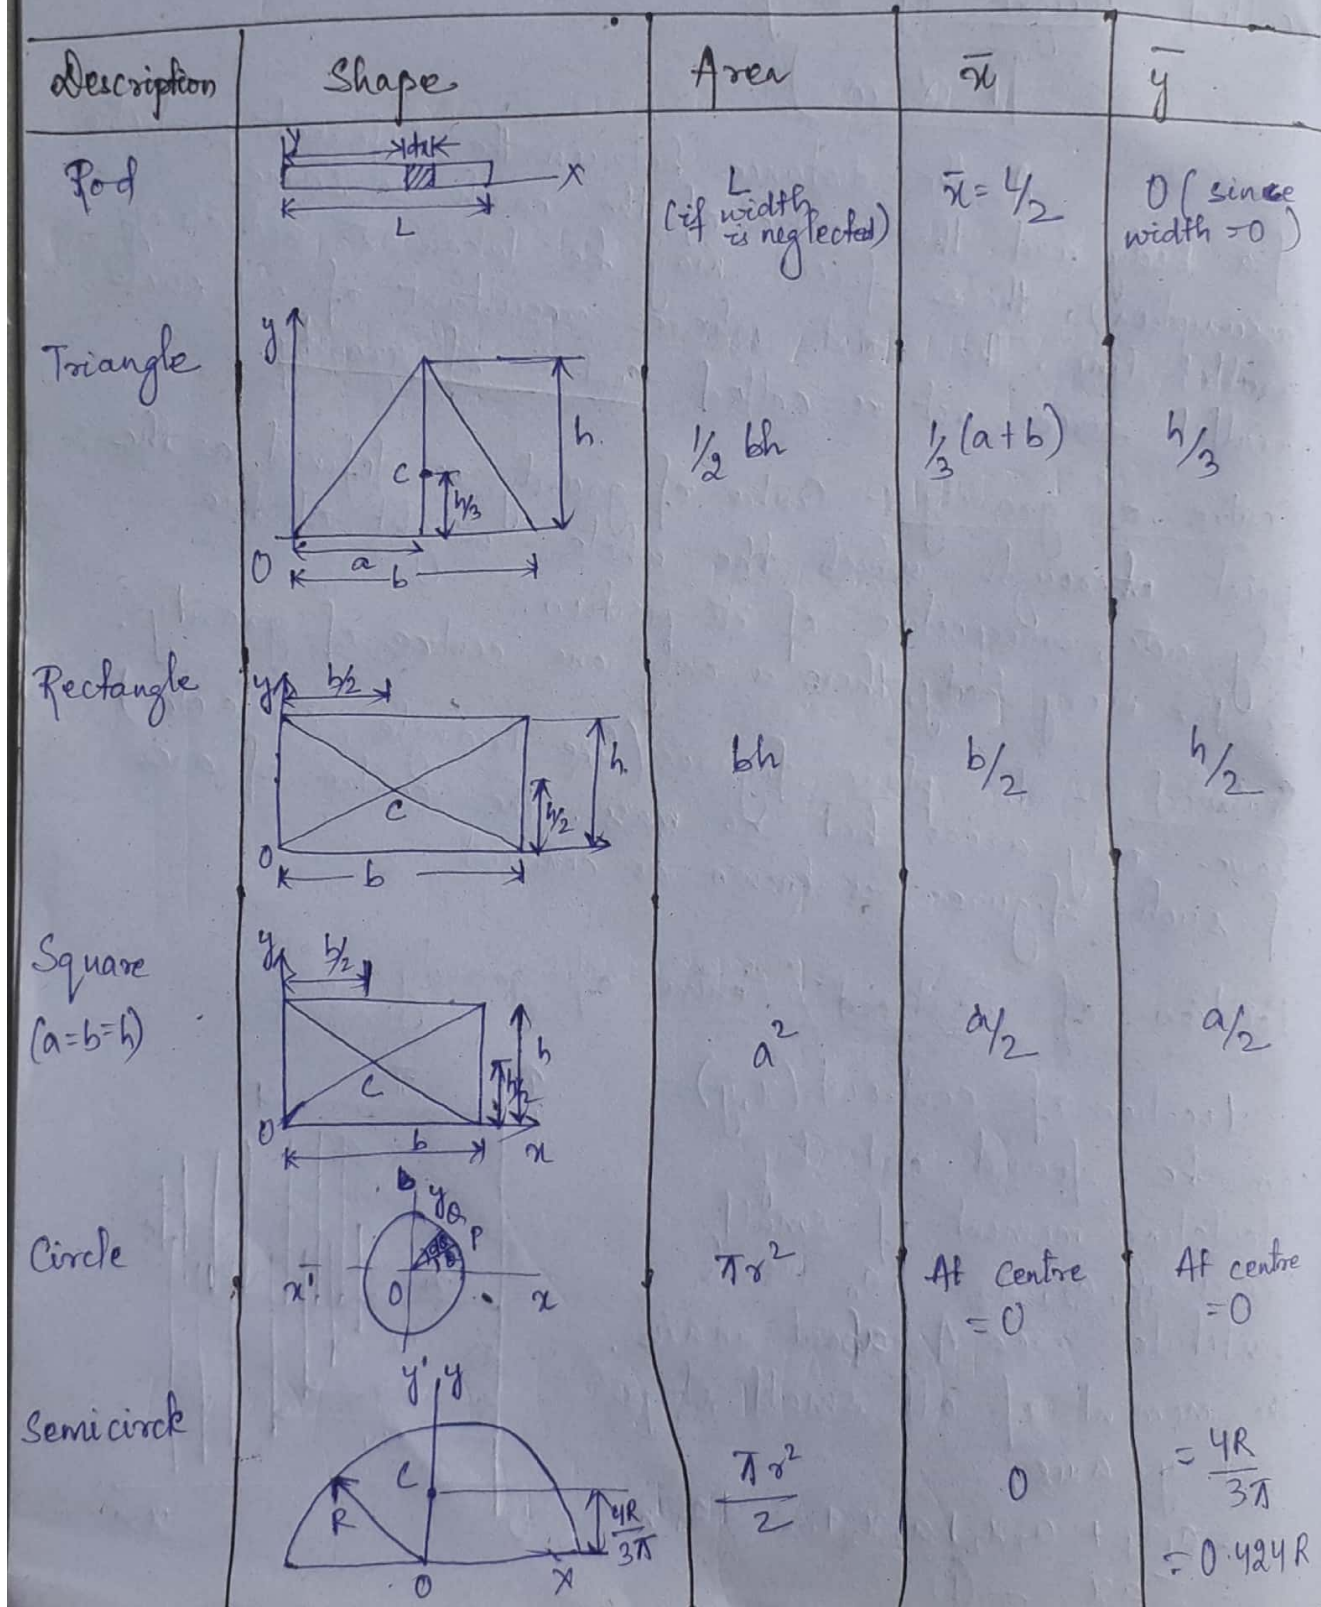 Description Shape Area x̄ ȳ
Rod
dx
X
L
L
(if width
is neglected)
x̄ = L/2
0 (since
width = 0)
Triangle
y
h
C
h/3
O
a
b
1/2 bh
1/3 (a+b)
h/3
Rectangle
y
b/2
h
C
h/2
O
b
bh
b/2
h/2
Square
(a=b=h)
y
b/2
h
C
h/2
O
b
x
a²
a/2
a/2
Circle
y
Q
P
dθ
θ
x'
O
x
y'
πr²
At centre
= 0
At centre
= 0
Semicircle
y
C
R
4R/3π
O
X
πr²/2
0
= 4R/3π
= 0.424R